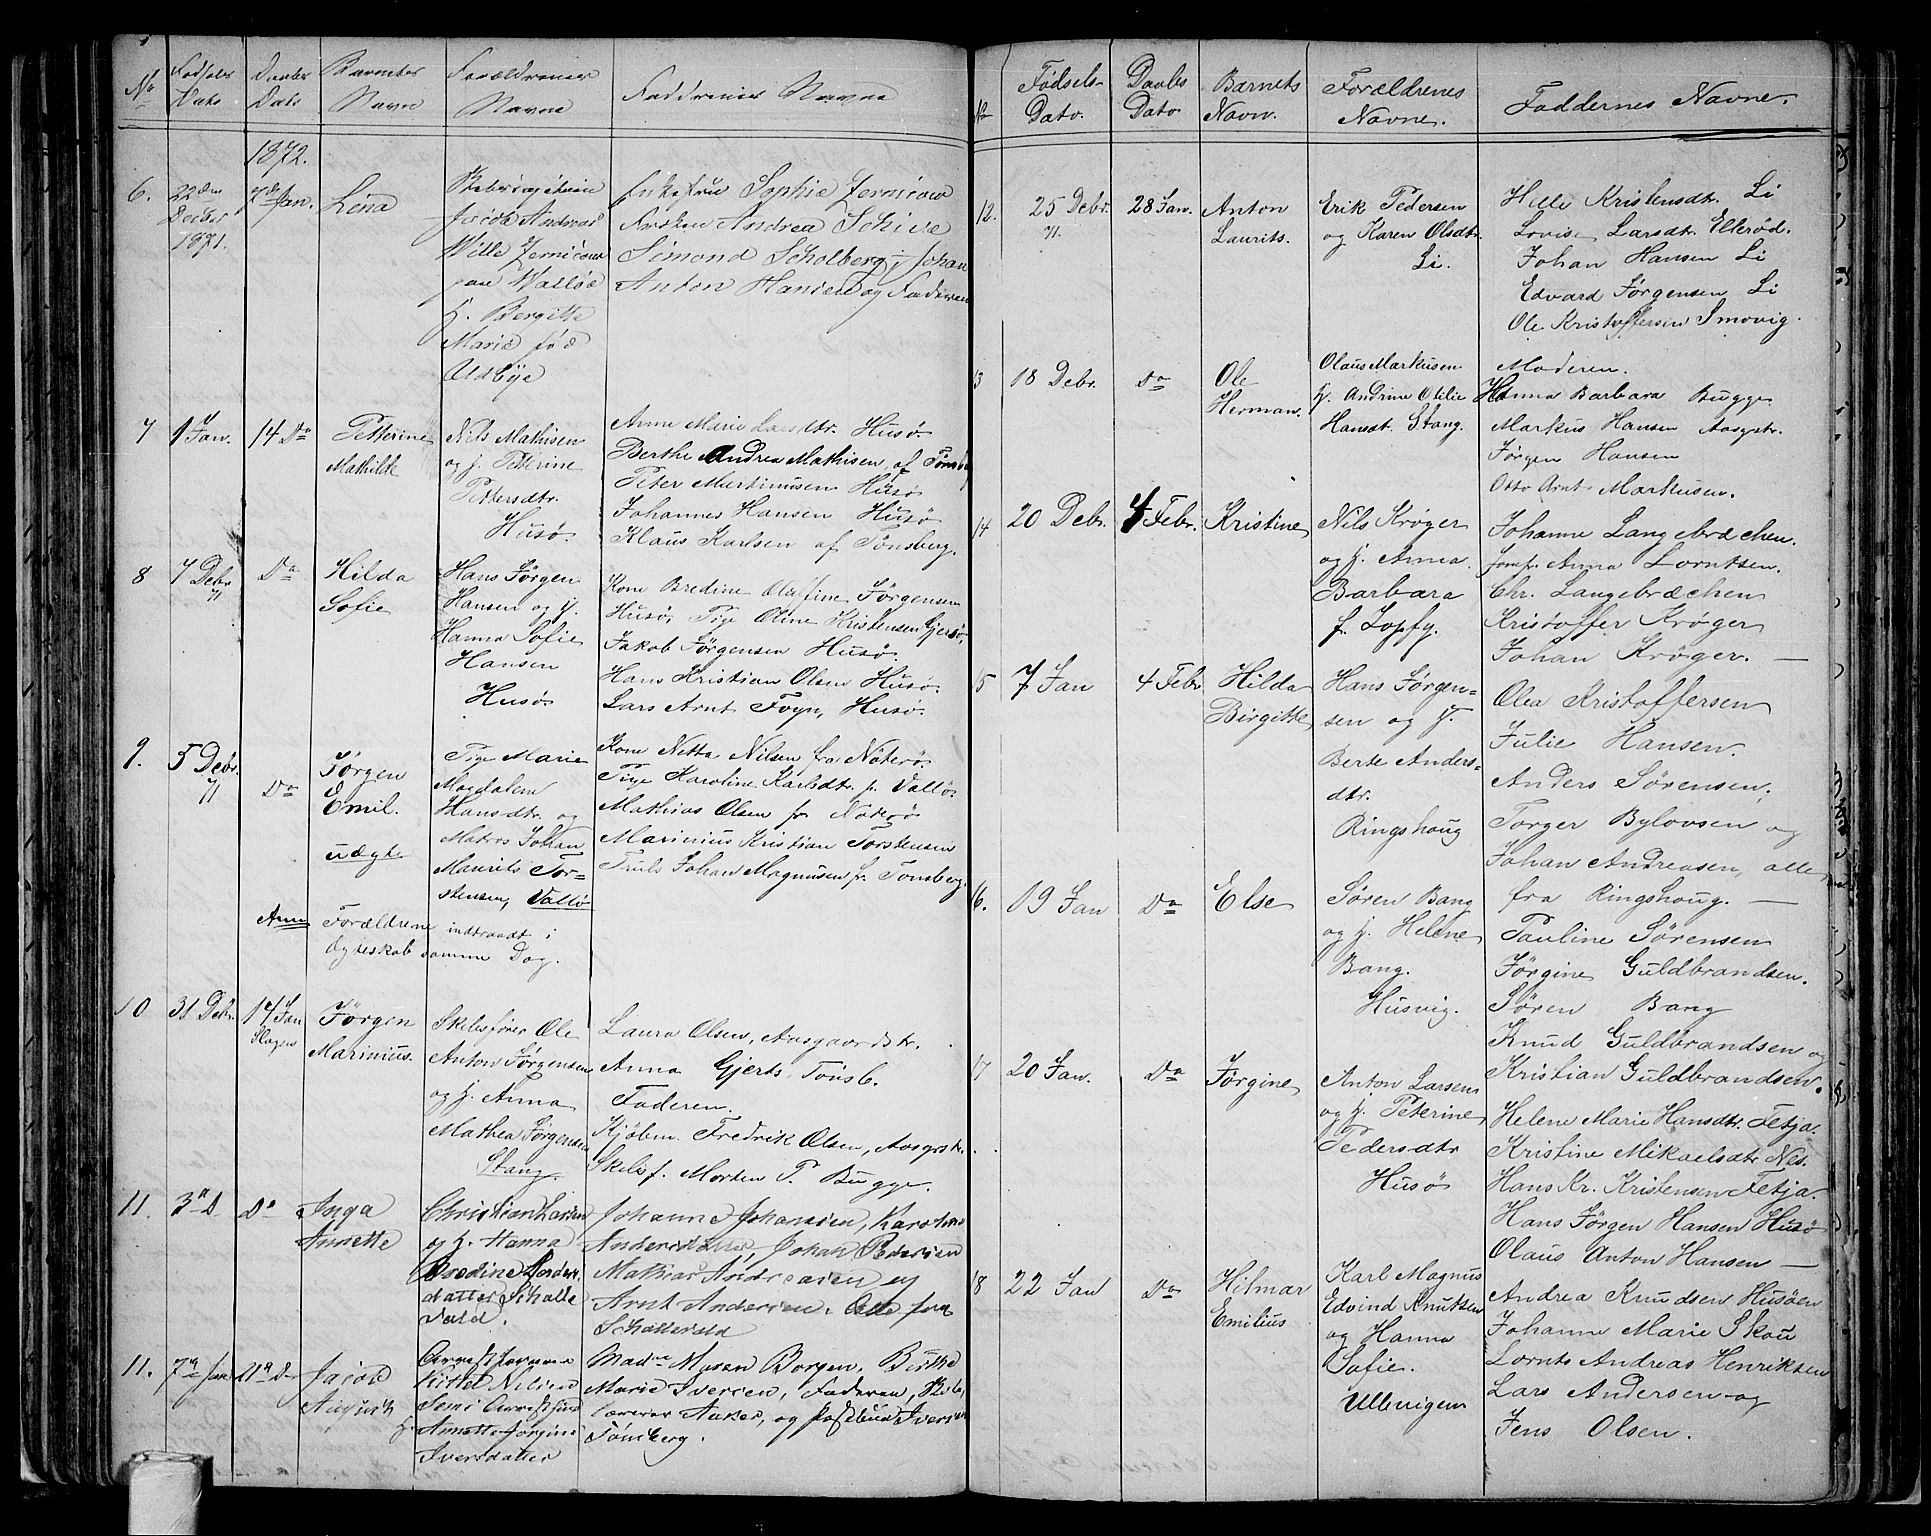 No Fødsels Dato Daabs Dato Barnets Navn Forældrenes Navne Faddrenes Navne
1872.
6. 22den Decbr 1871. 7de Jan. Lena
Jacob Andreas
Wille
paa Valløe
h. Bergitte
Marie fød
Enkefrue Sophie
Frøken Andrea Schive
Simond Scholberg, Johan
Anton Hansen og Faderen
7 1 Jan. 14 Do Petterine Mathilde
Nils Mathisen
og h. Petterine
Pettersdtr.
Husø.
Anne Marie Larsdtr. Husø.
Berthe Andrea Mathisen, af Tønsbg
Peter Martinusen Husø
Johannes Hansen Husø
Klaus Karlsen af Tønsberg.
8 7 Debr 71 Do Hilda Sofie
Hans Jørgen
Hansen og h.
Hanna Sofie
Hansen
Husø
Kone Bredine Olaffine Jørgensen
Husø, Pige Oline Kristensen Gjersø,
Jakob Jørgensen Husø
Hans Kristian Olsen Husø.
Lars Arnt Foyn, Husø.
9. 5 Debr. 71 Do Jørgen Emil. uægte
Pige Marie
Magdalene
Hansdtr. og
Matros Johan
Maurits Tor=
stensen, Vallø
Kone Netta Nilsen fra Nøterø.
Pige Karoline Karlsdtr. fr. Vallø.
Mathias Olsen fr. Nøterø
Marinius Kristian Torstensen
Truls Johan Magnusen fr. Tønsberg.
Anm Forældrene indtraadt i
Ægteskab samme Dag.
10 31 Debr. 14 Jan Slagen Jørgen Marinius.
Skibsfører Ole
Anton Jørgensen
og h. Anna
Mathea Jørgensen
Stang.
Laura Olsen, Aasgaardstr.
Anna Gjerts. Tønsb.
Faderen.
Kjøbm. Fredrik Olsen, Aasgrstr.
Skibsf. Morten P. Bugge.
11. 3 D Do Inga Annette
Christian Larsen
og h. Hanna
Johanne Johansen, Karsten
Andersdatter, Johan Pedersen
Mathias Andreasen og
Arnt Andersen. Alle fra
11. 7 Jan 21 D Jacob August
Kittel Nilsen
Annette Jørgine
Iversdatter
Madme Maren Borgen, Birthe
Marie Iversen, Faderen,
og Iversen
Tønsberg.
No Fødsels- Dato. Daabs Dato Barnets Navn. Forældrenes Navne. Faddernes Navne.
12. 25 Debr. 71. 28 Jan. Anton Laurits.
Erik Pedersen
og Karen Olsdtr.
Li.
Helle Kristensdtr. Li
Lovise Larsdtr. Ellerød.
Johan Hansen Li
Edvard Jørgensen Li
Ole Kristoffersen Smovig.
13 18 Debr. Do Ole Herman.
Olaus Markusen
h. Andrine Otilie
Hansdt. Stang.
Moderen.
Hanna Barbara Bugge.
Markus Hansen Aasgstr.
Jørgen Hansen
Otto Arnt Markusen.
14 20 Debr. 4 Febr. Kristine
Nils Krøger
og h. Anna
Barbara
f. Zopfy.
Johanne Langebræchen.
Jomfr. Anna Lorntsen.
Chr. Langebræchen
Kristoffer Krøger
Johan Krøger. —
5 7 Jan 4 Febr Hilda Birgitte
Hans Jørgen=
sen og h.
Berte Anders-
dtr.
Ringshoug
Olea Kristoffersen
Julie Hansen.
Anders Sørensen,
Torger Bylovsen og
Johan Andreasen, alle
fra Ringshoug. —
6. 19 Jan Do Else
Søren Bang
og h. Helene
Bang.
Husvig.
Pauline Sørensen
Jørgine Guldbrandsen.
Søren Bang
Knud Guldbrandsen og
Kristian Guldbrandsen.
17 20 Jan. Do Jørgine
Anton Larsen
og h. Peterine
Pedersdtr
Husø
Helene Marie Hansdtr. Fetja.
Kristine Mikaelsdtr Nes.
Hans Kr. Kristensen Fetja.
Hans Jørgen Hansen Husø
Olaus Anton Hansen —
18 22 Jan Do Hilmar Emilius
Karl Magnus
Edvind Knutsen
og Hanna
Sofie.
Ullevigen
Andrea Knudsen Husøen
Johanne Marie Skou
Lornts Andreas Henriksen
Lars Andersen og
Jens Olsen.